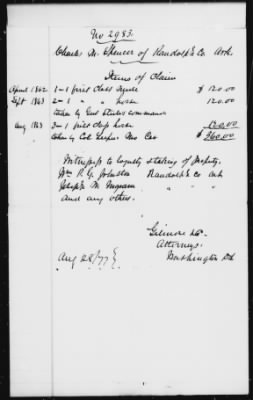 No 2983.
Charles M. Spencer of Randolph Co Ark.
Items of Claim
April 1862 1 - 1 first class $ 120.00
Sept 1863 2 - 1 " " horse 120.00
taken by Genl command
Aug 1863 3 - 1 first class horse 120.00
taken by Col Mo Cav $360.00
Witnesses to loyalty & taking of property.
Wm R. G. Johnston Randolph Co Ark
Joseph M. Ingram " "
and any others.
Gilmore & Co.
Attorneys.
Washington D.C.
Aug 22/77